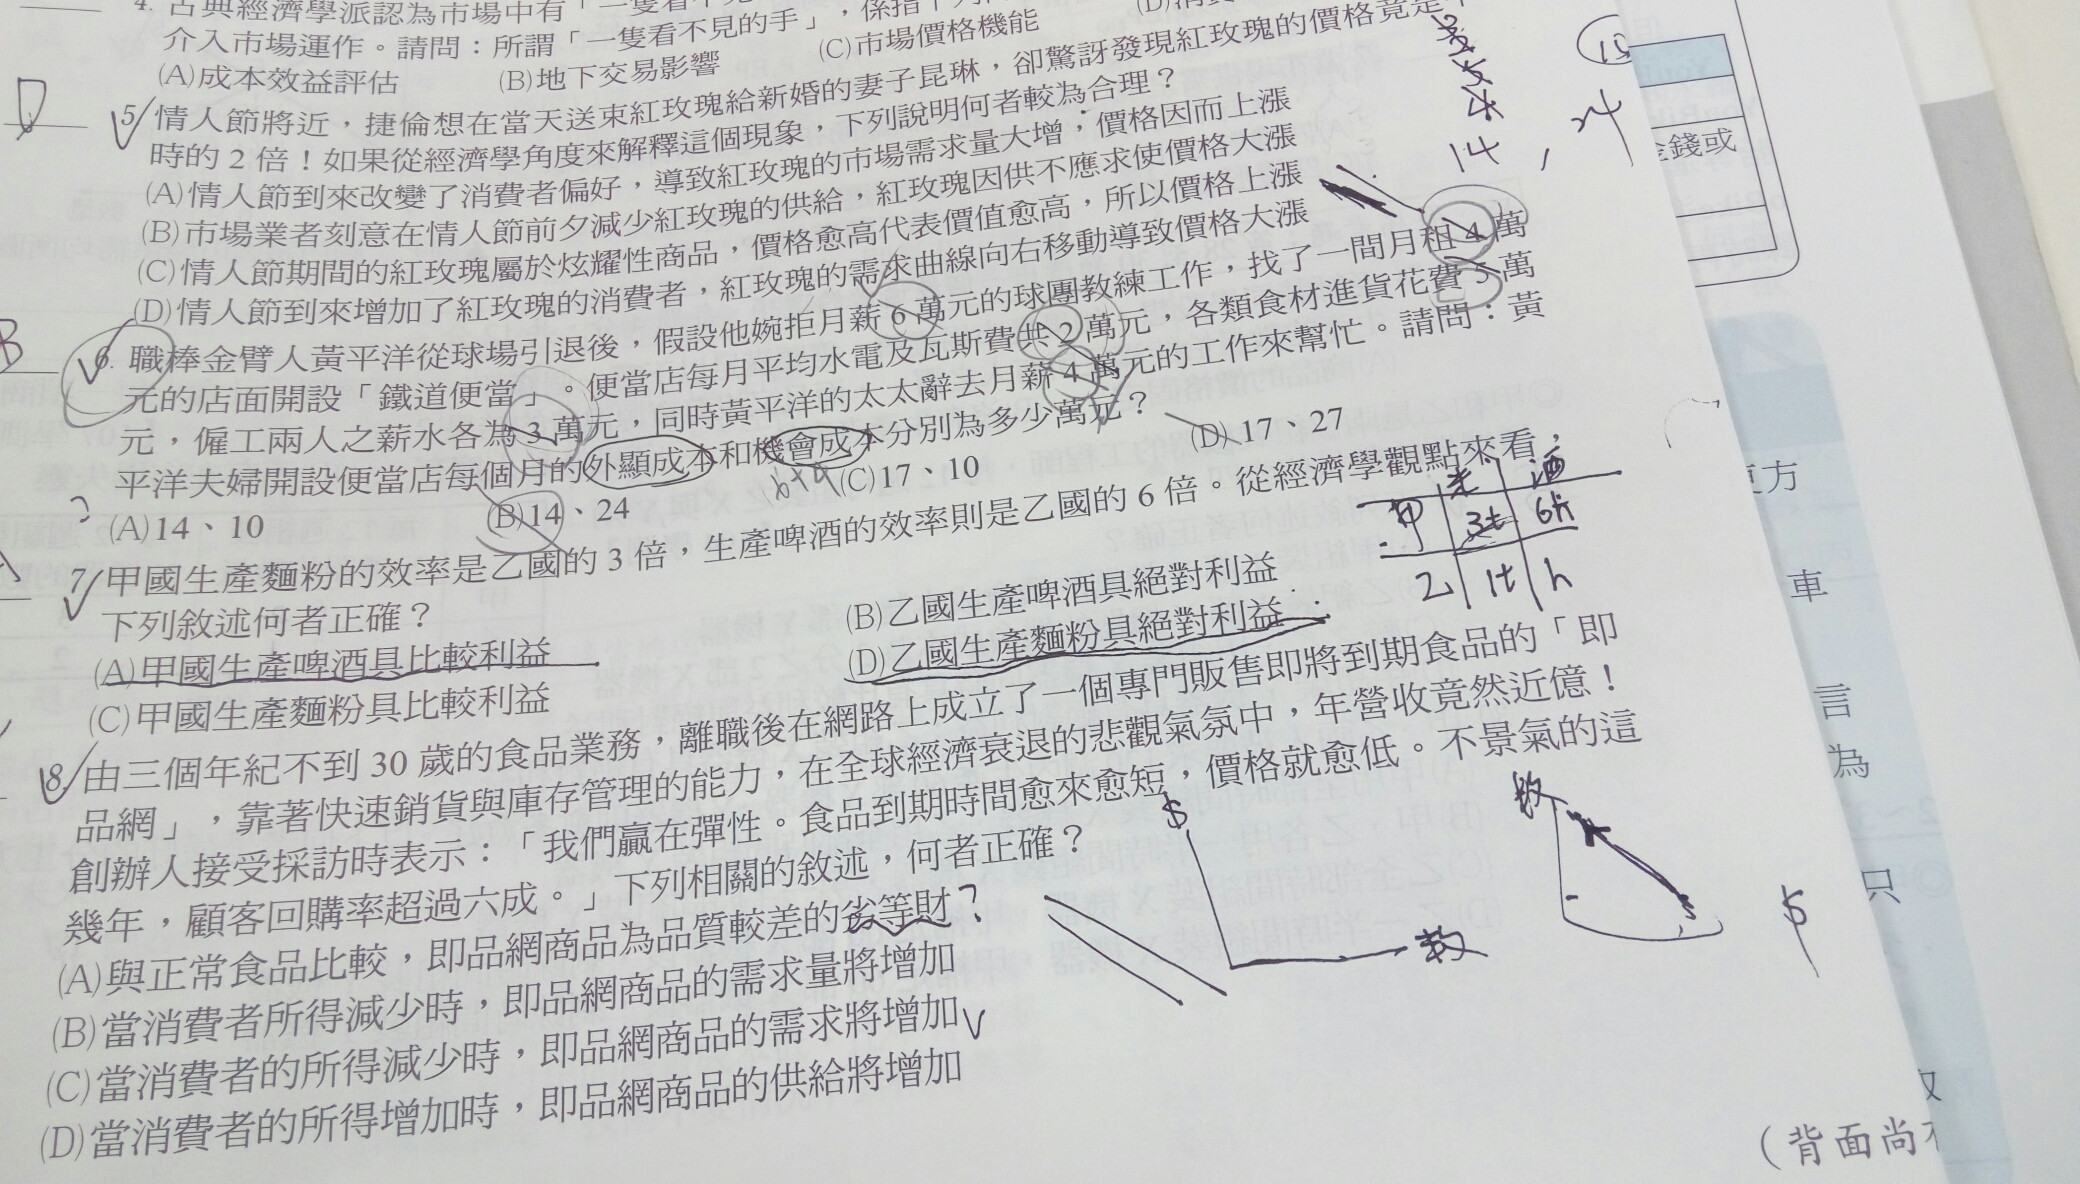 4. 古典經濟學派認為市場中有「一隻看不見
介入市場運作。請問：所謂「一隻看不見的手」，係指
(A)成本效益評估 (B)地下交易影響 (C)市場價格機能
D 5. 情人節將近，捷倫想在當天送束紅玫瑰給新婚的妻子昆琳，卻驚訝發現紅玫瑰的價格竟是
時的 2 倍！如果從經濟學角度來解釋這個現象，下列說明何者較為合理？
(A)情人節到來改變了消費者偏好，導致紅玫瑰的市場需求量大增，價格因而上漲
(B)市場業者刻意在情人節前夕減少紅玫瑰的供給，紅玫瑰因供不應求使價格大漲
(C)情人節期間的紅玫瑰屬於炫耀性商品，價格愈高代表價值愈高，所以價格上漲
(D)情人節到來增加了紅玫瑰的消費者，紅玫瑰的需求曲線向右移動導致價格大漲
14, 24
B 6. 職棒金臂人黃平洋從球場引退後，假設他婉拒月薪 6 萬元的球團教練工作，找了一間月租 4 萬
元的店面開設「鐵道便當」。便當店每月平均水電及瓦斯費共 2 萬元，各類食材進貨花費 5 萬
元，僱工兩人之薪水各為 3 萬元，同時黃平洋的太太辭去月薪 4 萬元的工作來幫忙。請問：黃
平洋夫婦開設便當店每個月的外顯成本和機會成本分別為多少萬元？
(A)14、10 (B)14、24 (C)17、10 (D)17、27
7. 甲國生產麵粉的效率是乙國的 3 倍，生產啤酒的效率則是乙國的 6 倍。從經濟學觀點來看，
下列敘述何者正確？
(A)甲國生產啤酒具比較利益 (B)乙國生產啤酒具絕對利益
(C)甲國生產麵粉具比較利益 (D)乙國生產麵粉具絕對利益
酒
甲 3t 6h
乙 1t h
8. 由三個年紀不到 30 歲的食品業務，離職後在網路上成立了一個專門販售即將到期食品的「即
品網」，靠著快速銷貨與庫存管理的能力，在全球經濟衰退的悲觀氣氛中，年營收竟然近億！
創辦人接受採訪時表示：「我們贏在彈性。食品到期時間愈來愈短，價格就愈低。不景氣的這
幾年，顧客回購率超過六成。」下列相關的敘述，何者正確？
(A)與正常食品比較，即品網商品為品質較差的劣等財？
(B)當消費者所得減少時，即品網商品的需求量將增加
(C)當消費者的所得減少時，即品網商品的需求將增加
(D)當消費者的所得增加時，即品網商品的供給將增加
$
数
(背面尚
15
金錢或
方
車
言
為
只